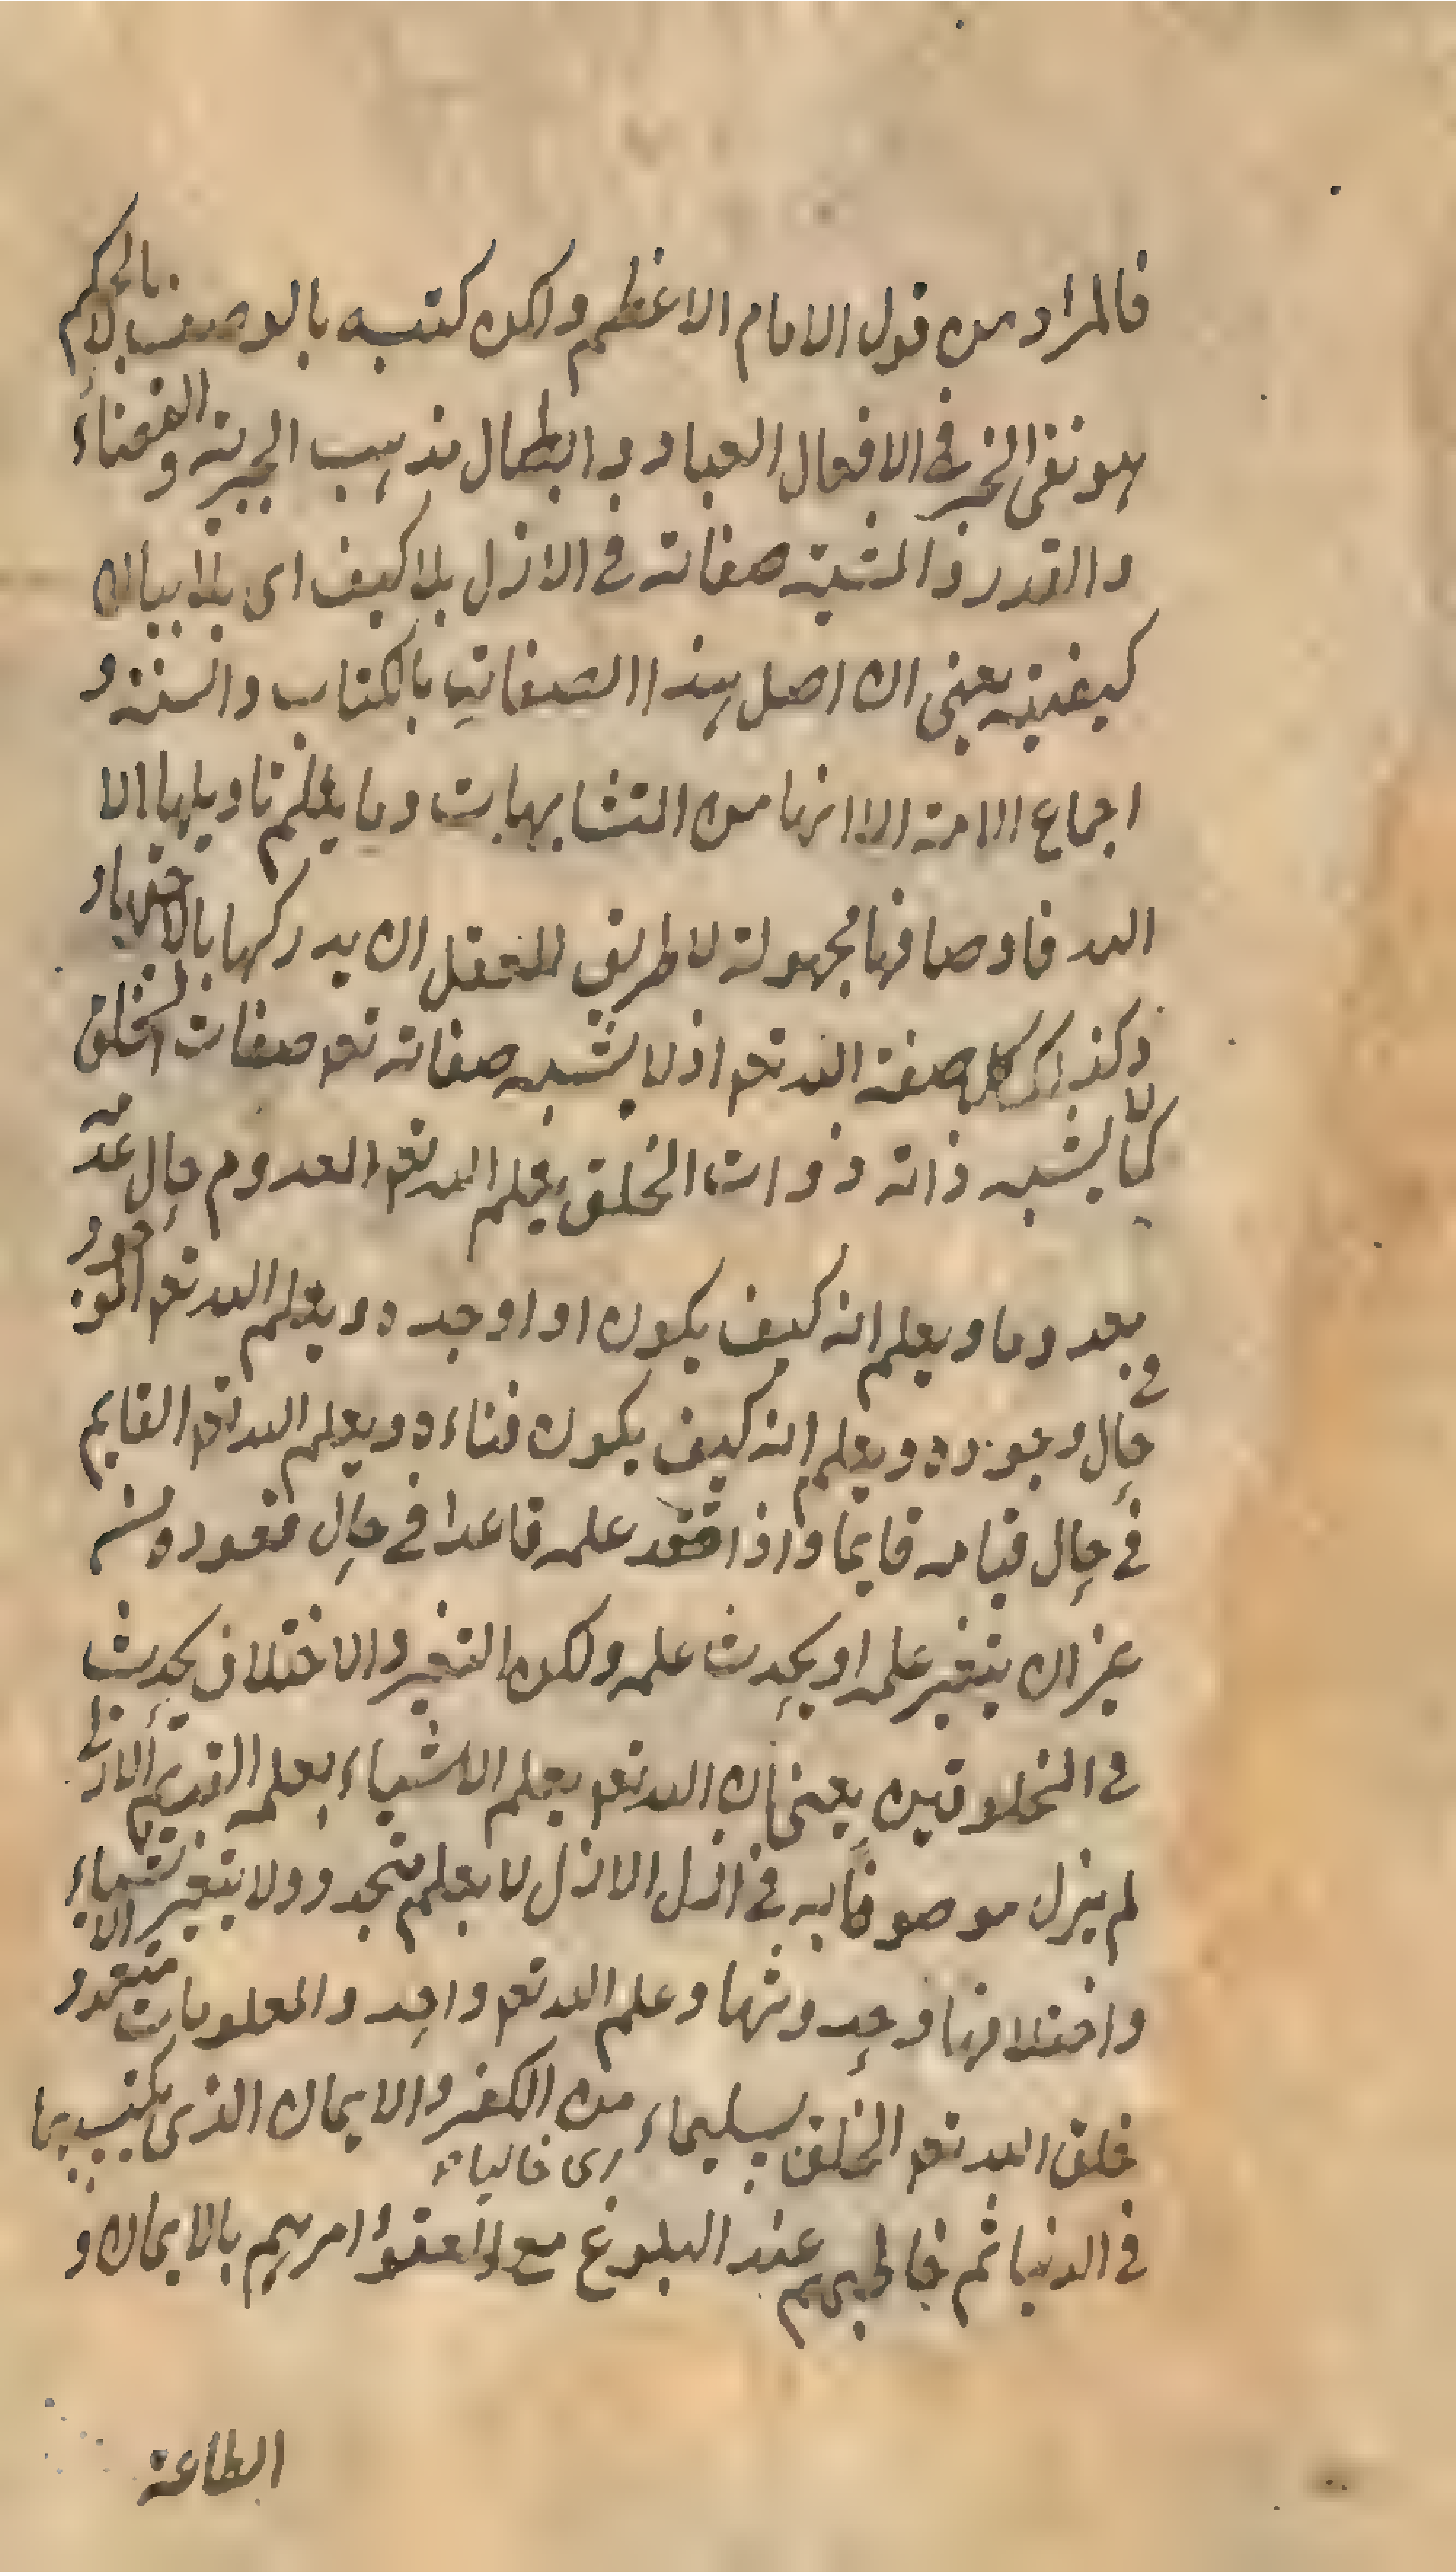 فالمراد من قول الامام الاعظم ولكن كتبه بالوصف لا بالحكم
هو نفى الجبر فى الافعال العباد و ابطال مذهب الجبرية و القضاء
و القدر و المشية صفاته فى الازل بلا كيف اى بلا بيان
كيفيته يعنى ان اصل هذا الصفات بالكتاب والسنة و
اجماع الامة الا انها من التشابهات وما يعلم تاويلها الا
الله فاوصافها مجهولة لا طريق للعقل ان يدركها بالاجتهاد
وكذلك كل صفة الله تعم اذ لا يشبه صفاته تعم صفات الخلق
كما لا يشبه ذاته ذوات الخلق يعلم الله تعم المعدوم حال عدمه
معدوما ويعلم انه كيف يكون اذا اوجده و يعلم الله تعم الموجود
فى حال وجوده ويعلم انه كيف يكون فناءه ويعلم الله تعم القايم
فى حال قيامه قايما واذا قعد علمه قاعدا فى حال قعوده من
غير ان يتغير علمه او يحدث علمه ولكن التغير والاختلاف يحدث
فى المخلوقين يعنى ان الله تعم يعلم الاشياء بعلمه القديم الازلى
لم يزل موصوفا به فى ازل الازل لا بعلم متجدد ولا بتغير الاشياء
واختلافها وحدوثها وعلم الله تعم واحد والمعلومات متعدد
خلق الله تعم الخلق سليماء اى خاليا من الكفر والايمان الذى يكتسب بها
فى الدنيا ثم خاطبهم عند البلوغ مع العقل امرهم بالايمان و
الطاعة